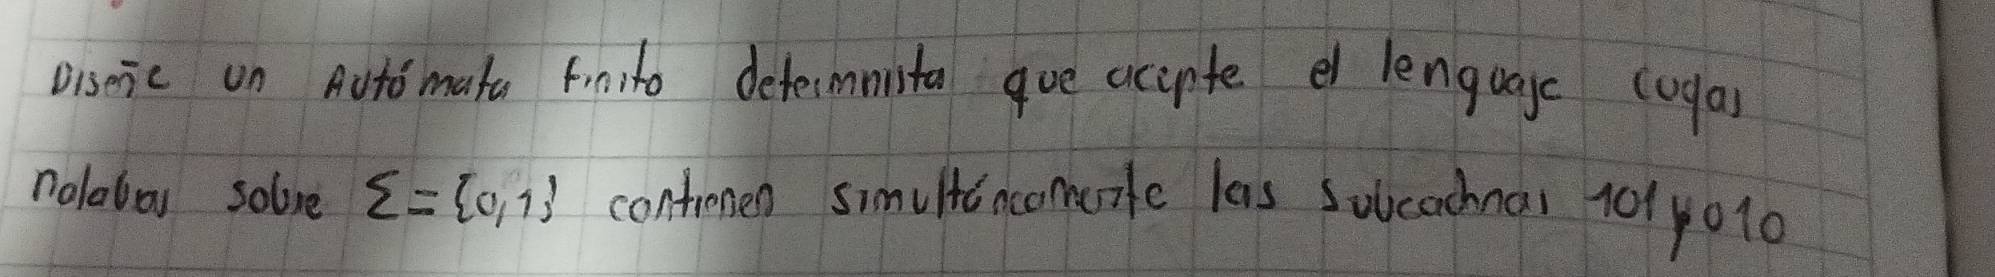 Diseñe un Autómata finito determinista que acepte el lenguaje cuyas
palabras sobre Σ = {0,1} contienen simultáneamente las subcadenas 101 y 010